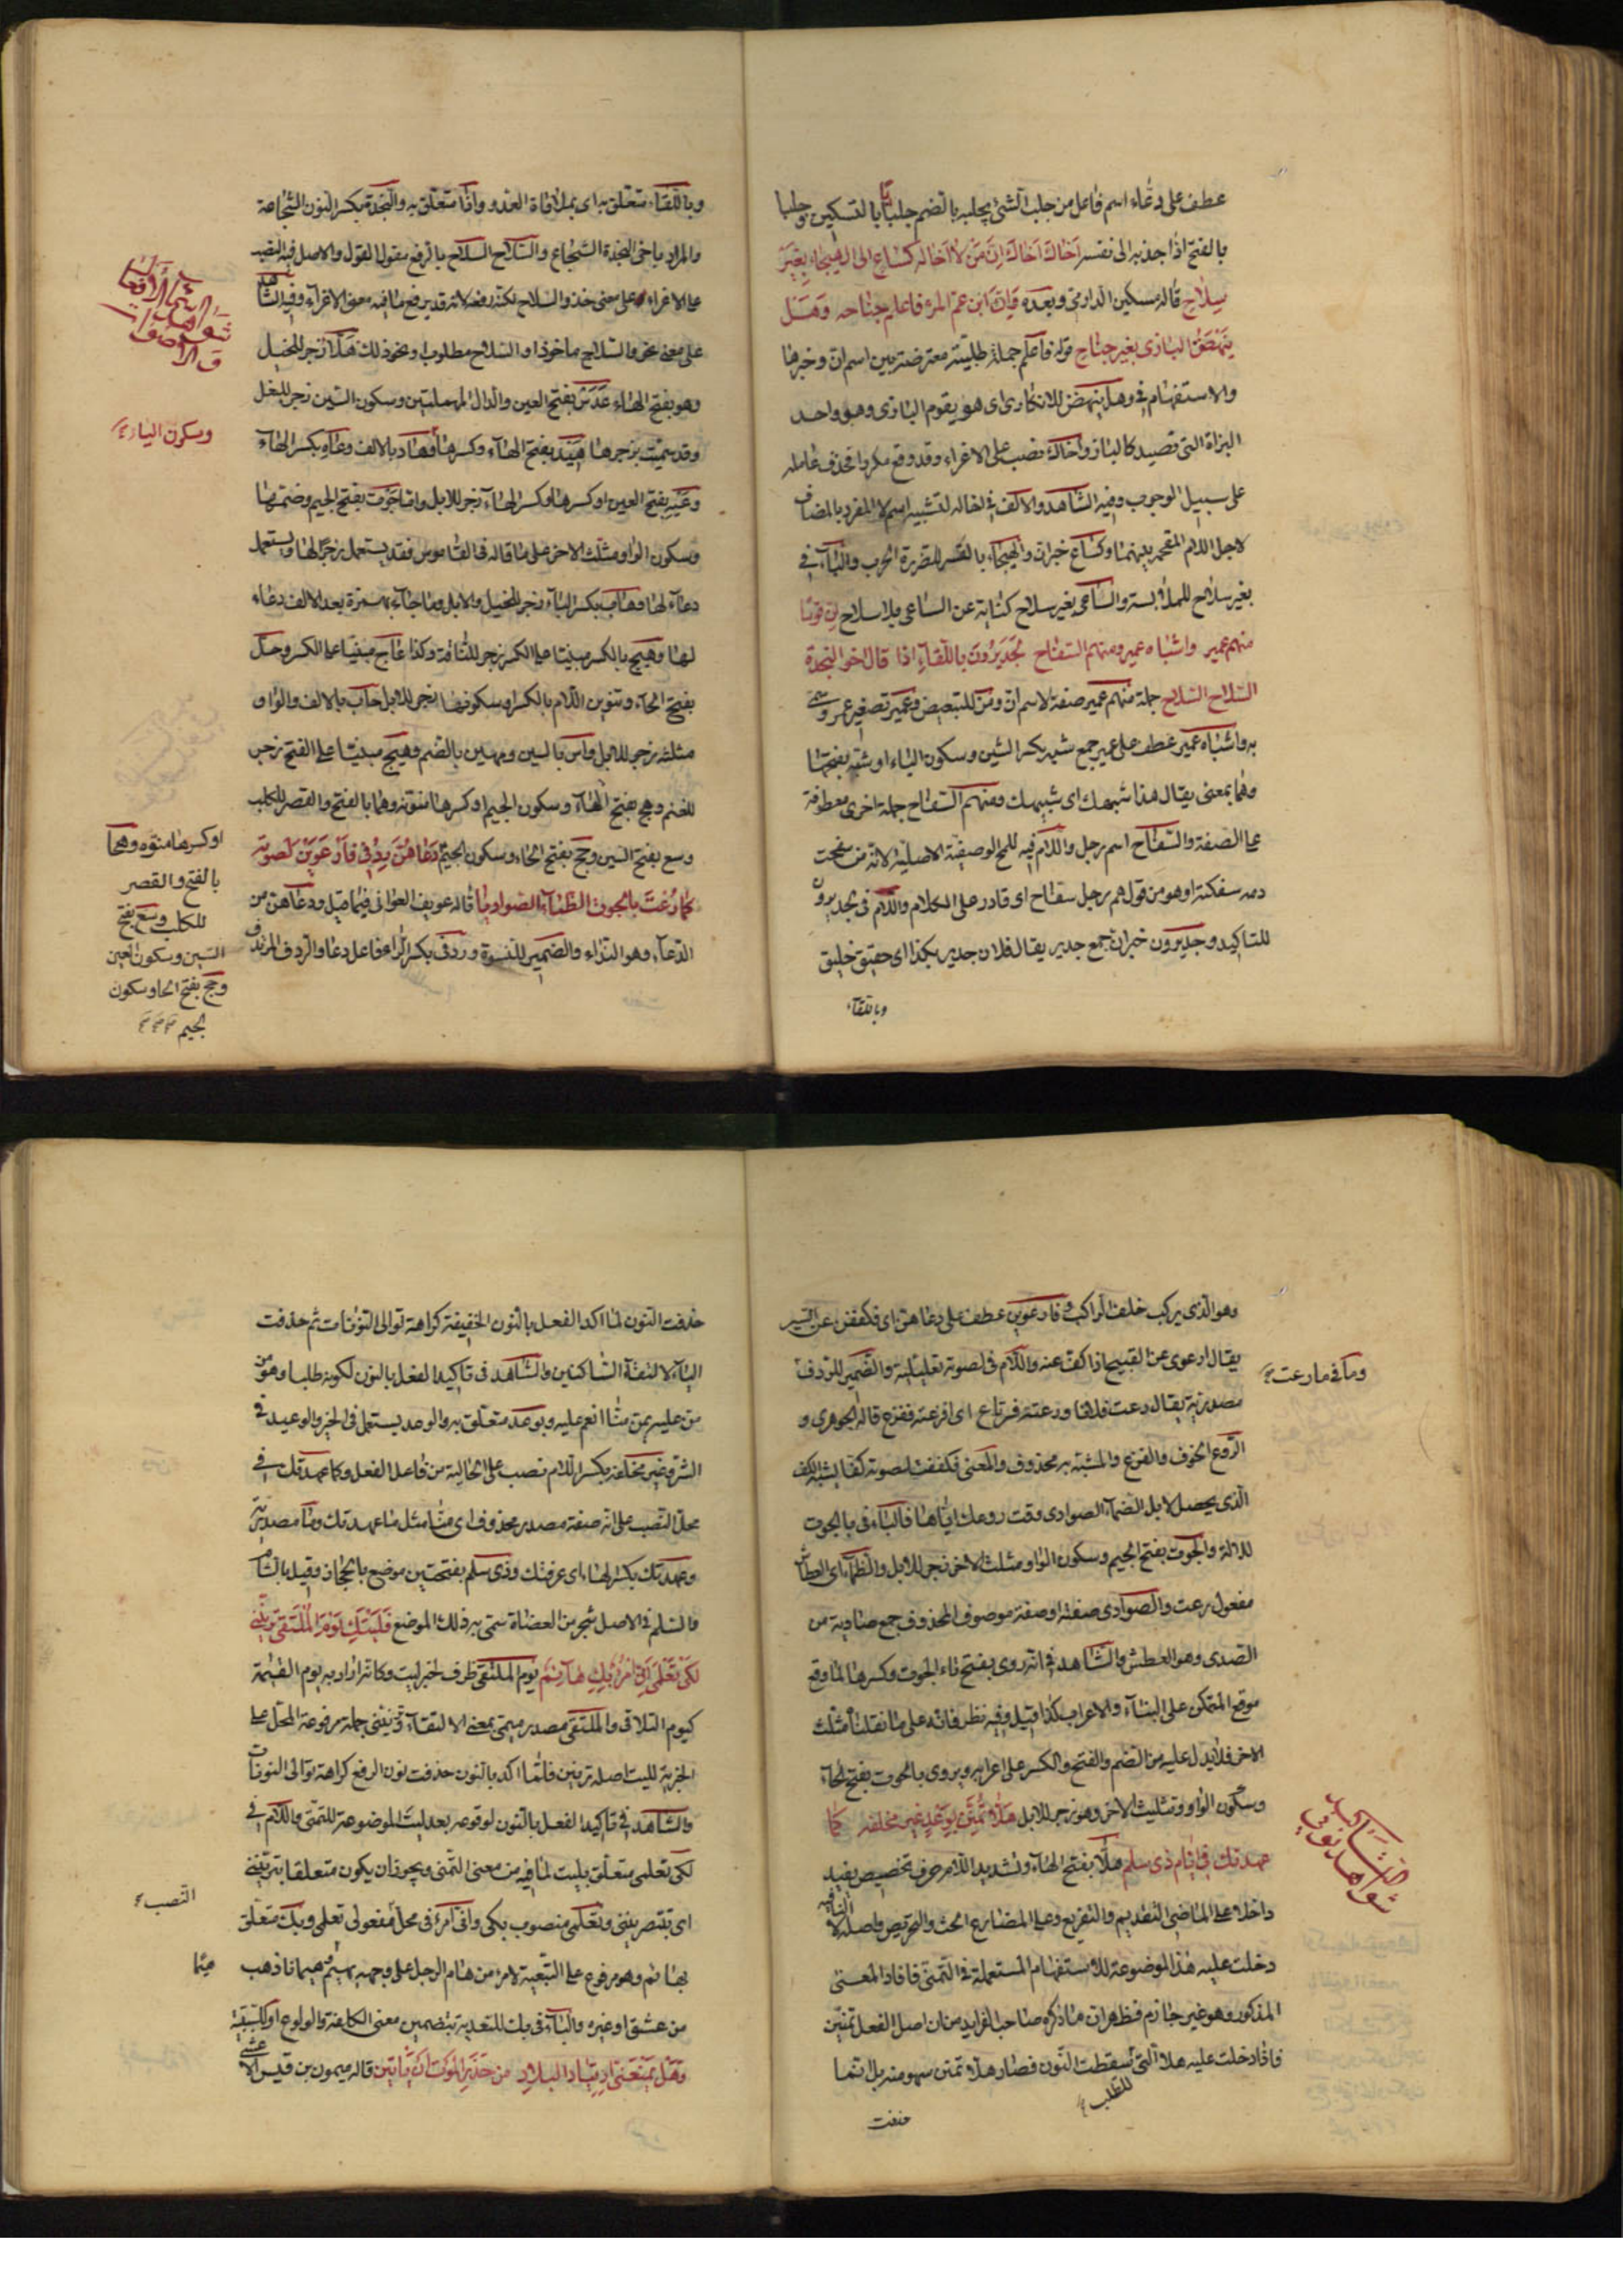 عطف على دعاء اسم فاعل من جلب الشئ يجلبه بالضم جلبا بالتسكين وجلبا
بالفتح اذا جذبه الى نفسه اَخَاكَ اَخَاكَ اِنَّ مَنْ لا اَخَا لَهُ كساعٍ الى الهيجاء بِغَيْرِ
سِلاحِ قاله مسكين الدارمى وبعده فَاِنَّ ابن عم المرء فاعلم جناحه وَهَلْ
يَنْهَضُ البازى بغير جناحِ قوله فاعلم جملة طلبية معترضة بين اسم ان وخبرها
والاستفهام فى وهل ينهض للانكارى اى هو يقوم البازى وهو واحد
البزاة التى تصيد كالباز واخاك نصب على الاغراء وقد وقع مكررا فحذف عامله
على سبيل الوجوب وفيه الشاهد والالف فى اخاله لتشبيه اسم لا المفرد بالمضاف
لاجل اللام المقحمة بينهما وكساع خبر ان والهيجاء بالقصر للضرورة الحرب والباء فى
بغير سلاح للملابسة والساعى بغير سلاح كناية عن الساعى بلا سلاح ان قومًا
منهم عمير واشباه عمير ومنهم السفاح لَجَدِيرُونَ باللقاءِ اذا قال اخو النجدة
السّلاح السّلاح جملة منهم عمير صفة لاسم ان ومن للتبعيض وعمير تصغير عمرو سمى
به واشباه عمير عطف على عمير جمع شبه بكسر الشين وسكون الباء او شبه بفتحهما
وهما بمعنى يقال هذا شبهك اى شبيهك ومنهم السفاح جملة اخرى معطوفة
على الصفة والسفاح اسم رجل واللام فيه للمح الوصفية الاصلية لانه من سفحت
دمه سفكته او هو من قولهم رجل سفاح اى قادر على الكلام واللام فى لجديرون
للتاكيد وجديرون خبر ان جمع جدير يقال فلان جدير بكذا اى حقيق خليق
وباللقاء
وباللقاء متعلق به اى بملاقاة العدو واذا متعلق به والنجدة بكسر النون الشجاعة
والمراد باخى النجدة الشجاع والسلاح السلاح بالرفع مقول القول والاصل فيه النصب
على الاغراء على معنى خذ والسلاح لكنه رفعه لانه قد يرفع ما فيه معنى الاغراء وفيه الشاهد
على معنى نحو السلاح ماخوذ او السلاح مطلوب او نحو ذلك هَلَا زجر للخيل
وهو بفتح الهاء عَدَسْ بفتح العين والدال المهملتين وسكون السين زجر للبغل
وقد سميت بزجرها هَيْد بفتح الهاء وكسرها وهاد بالالف وعاه بكسر الهاء
وعَيْهِ بفتح العين او كسرها وكسر الهاء زجر للابل واما جوت بفتح الجيم وضمتها
وسكون الواو مثلث الاخر على ما قاله فى القاموس فقد يستعمل زجرًا لها ويستعمل
دعاء لها وهاب بكسر الباء زجر للخيل والابل وما جاء بهمزة بعد الالف دعاء
لها وهيج بالكسر مبنيا على الكسر زجر للناقة وكذا عاج مبنيا على الكسر وحل
بفتح الحاء وتنوين اللام بالكسر او سكونها زجر للابل حاب بالالف والواو
مثلثه زجر للابل واس بالسين ومهملتين بالضم وهيج مبنيا على الفتح زجر
للغنم وهج بفتح الهاء وسكون الجيم او كسرها منونة وهما بالفتح والقصر للكلب
وسع بفتح السين وحج بفتح الحاء وسكون الجيم دَعَاهُنَّ رِدْفِى فَارْعَوَيْنَ لصوته
كَمَا رُعْتَ بالجوت الظِّمَاءَ الصَّوَادِيَا قاله عويف القوافى فيما قيل ودعاهن من
الدعاء وهو النداء والضمير للنسوة وردفى بكسر الراء فاعل دعا والردف المرتدف
شواهد
اسماء الافعال
والاصوات
وسكون الياء
او كسرها منونه وهجا
بالفتح والقصر
للكلب وسع بفتح
السين وسكون العين
وحج بفتح الحا وسكون
الجيم
وهو الذى يركب خلف الراكب وفارعوين عطف على دعاهن اى فكففن عن السير
يقال ارعوى عن القبيح اذا كف عنه واللام فى لصوته تعليلية والضمير للردف
مصدرية يقال رعت فلانا وروعته فرتاع اى افزعته ففزع قاله الجوهرى و
الروع الخوف والفزع والمشبه به محذوف والمعنى فكففت لصوته كفا يشبه الكف
الذى يحصل لابل الظماء الصوادى وقت روعك اياها فالباء فى بالجوت
للالة والجوت بفتح الجيم وسكون الواو مثلث الاخر زجر للابل والظماء اى العطاش
مفعول رعت والصوادى صفته او صفة موصوف المحذوف جمع صادية من
الصدى وهو العطش والشاهد فى انه روى بفتح تاء الجوت وكسرها لما وقع
موقع المتمكن على البناء والاعراب كذا قيل وفيه نظر فانه على ما نقلنا مثلث
الاخر فلا يدل عليه من الضم والفتح والكسر على اعرابه ويروى بالحوت بفتح الحاء
وسكون الواو وتثليث الاخر وهو زجر للابل هَلَّا تَمُنِّنْ بِوَعْدٍ غير مخلفة كما
عهدتك فى ايام ذى سلم هلا بفتح الهاء وتشديد اللام حرف تحضيض يفيد
داخلا على الماضى التنديم والتقريع وعلى المضارع الحث والتحريض واصله لا النافية
دخلت عليه هذا الموضوعة للاستفهام المستعملة فى التمنى فافاد المعنى
المذكور وهو غير جازم فظهر ان ما ذكره صاحب الفرايد من ان اصل الفعل تمنين
فاذا دخلت عليه هلا التى اسقطت النون فصار هلا تمنن سهو منه بل انما
للطلب
حذفت
وما فى ما رعت
شواهد نونى
التاكيد
حذفت النون لما اكد الفعل بالنون الخفيفة كراهة توالى النونات ثم حذفت
الياء لالتقاء الساكنين والشاهد فى تاكيد الفعل بالنون لكونه طلبا وهو من
من عليه يمن منّا انعم عليه وبوعد متعلق به والوعد يستعمل فى الخير والوعيد فى
الشر وغير مخلفة بكسر اللام نصب على الحالية من فاعل الفعل وكما عهدتك فى
محل النصب على انه صفة مصدر محذوف اى منّا مثل ما عهدتك وما مصدرية
وعهدتك بكسر الهاء اى عرفتك وذى سلم بفتحتين موضع بالحجاز وقيل بالشام
والسلم فى الاصل شجر من العضاة سمى به ذلك الموضع فَلَيْتَكِ يَوْمَ المُلْتَقَى تَرَيِنَّنِى
لكَىْ تَعْلَمِى اَنِّى امْرُؤٌ بِكِ هَائِمُ يوم الملتقى ظرف لخبر ليت وكانه اراد به يوم القيمة
كيوم التلاق والملتقى مصدر ميمى بمعنى الالتقاء وترينّنى جملة مرفوعة المحل على
الخبرية لليت اصله تريين فلما اكد بالنون حذفت نون الرفع كراهة توالى النونات
والشاهد فى تاكيد الفعل بالنون لوقوعه بعد ليت الموضوعة للتمنى واللام فى
لكى تعلمى متعلق بليت لما فيه من معنى التمنى ويجوز ان يكون متعلقا بترينّنى
اى تبصرينّنى وتعلمى منصوب بكى وانى امرؤ فى محل مفعولى تعلمى وبك متعلق
بهائم وهو مرفوع على التبعية لامرء من هام الرجل على وجهه يهيم هيمانا ذهب
من عشق او غيره والباء فى بك للتعدية بتضمين معنى الكلفة والولوع او للسببية
وَهَلْ يَمْنَعَنِّى ارْتِيَادِ البلادِ من حَذَرِ المَوْتِ اَنْ يَأْتِيَن قاله ميمون بن قيس الاعشى
النصب
هيما